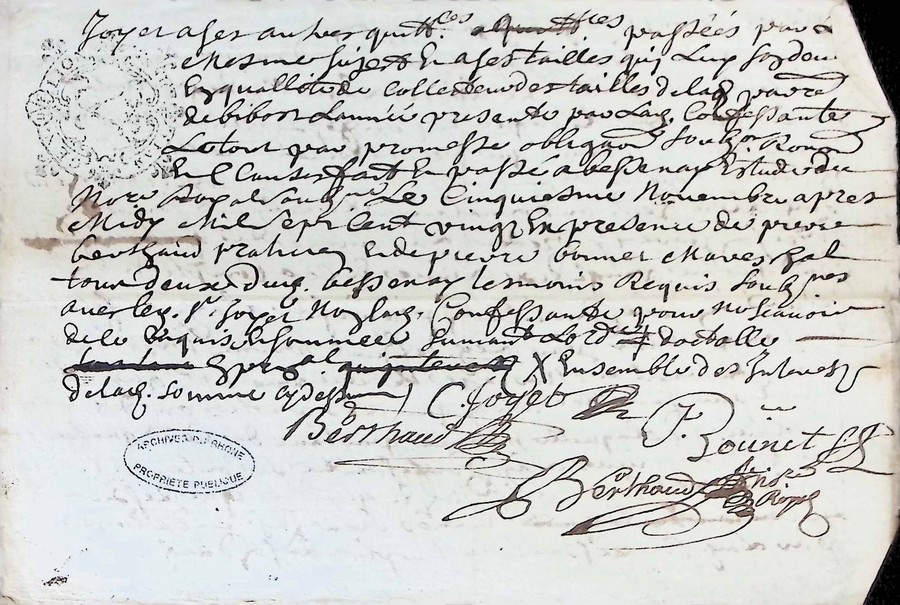 Joyet a ses autres quittces passéés par
Mesme sujet En ases tailles quj Luy
En quallité de Collecteur des tailles delad
de bibost Lannéé presente par Lad. Confessante
Le tout par promesse obligaon Soubz.on Renon
En Clauses fait En passé a bessenay Estude du
Nore Royal Soubz.ne Le Cinquiesme Novembre apres
Midy Mil Sept Cent vingt En presence de pierre
berthaud praticien Et de pierre bonnet Mareschal
tous deux dud. bessenay tesmoins Requis Soubz.nes
avec led. Sr. Joyet No Lad. Confessante pour ne scavoir
de le Requis Et sommée Suivant Lordre
X Ensemble des Interests
delad. somme cy dessus
C Joyet
Berthaud
P. Bounet
Berthaud nore Royal
ARCHIVES DU RHONE
PROPRIETE PUBLIQUE